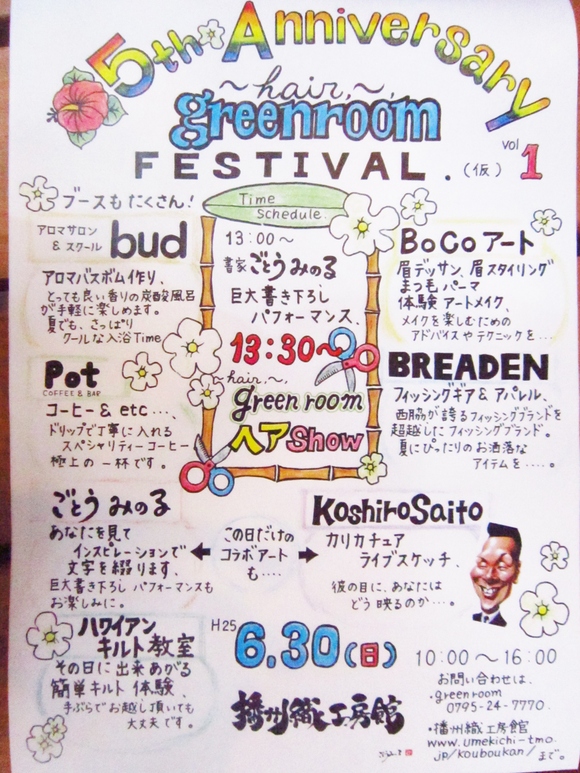 5th Anniversary
～hair,～,
greenroom
FESTIVAL.
(仮)
vol 1
ブースもたくさん!
アロマサロン
&スクール
bud
アロマバスボム作り、
とっても良い香りの炭酸風呂
が手軽に楽しめます。
夏でも、さっぱり
クールな入浴Time
Pot
COFFEE & BAR
コーヒー& etc…、
ドリップで丁寧に入れる
スペシャリティーコーヒー
極上の一杯です。
Time
Schedule.
13:00～
書家ごとうみのる
巨大書き下ろし
パフォーマンス、
13:30～
hair,～,
green room
ヘアshow
BoCoアート
眉デッサン、眉スタイリング
まつ毛パーマ
体験アートメイク、
メイクを楽しむための
アドバイスやテクニックを…
BREADEN
フィッシングギア&アパレル、
西脇が誇るフィッシングブランドを
超越したフィッシングブランド。
夏にぴったりのお洒落な
アイテムを……。
ごとうみのる
あなたを見て
インスピレーションで
文字を綴ります、
巨大書き下ろしパフォーマンスも
お楽しみに。
この日だけの
コラボアート
も….
KoshiroSaito
カリカチュア
ライブスケッチ、
彼の目に、あなたは
どう映るのか…。
ハワイアン
キルト教室
その日に出来あがる
簡単キルト体験、
手ぶらでお越し頂いても
大丈夫です。
H25
6.30(日)
10:00～16:00
播州織工房館
お問い合わせは、
・greenroom
0795-24-7770.
・播州織工房館
www.umekichi-tmo.
jp/kouboukan/まで。